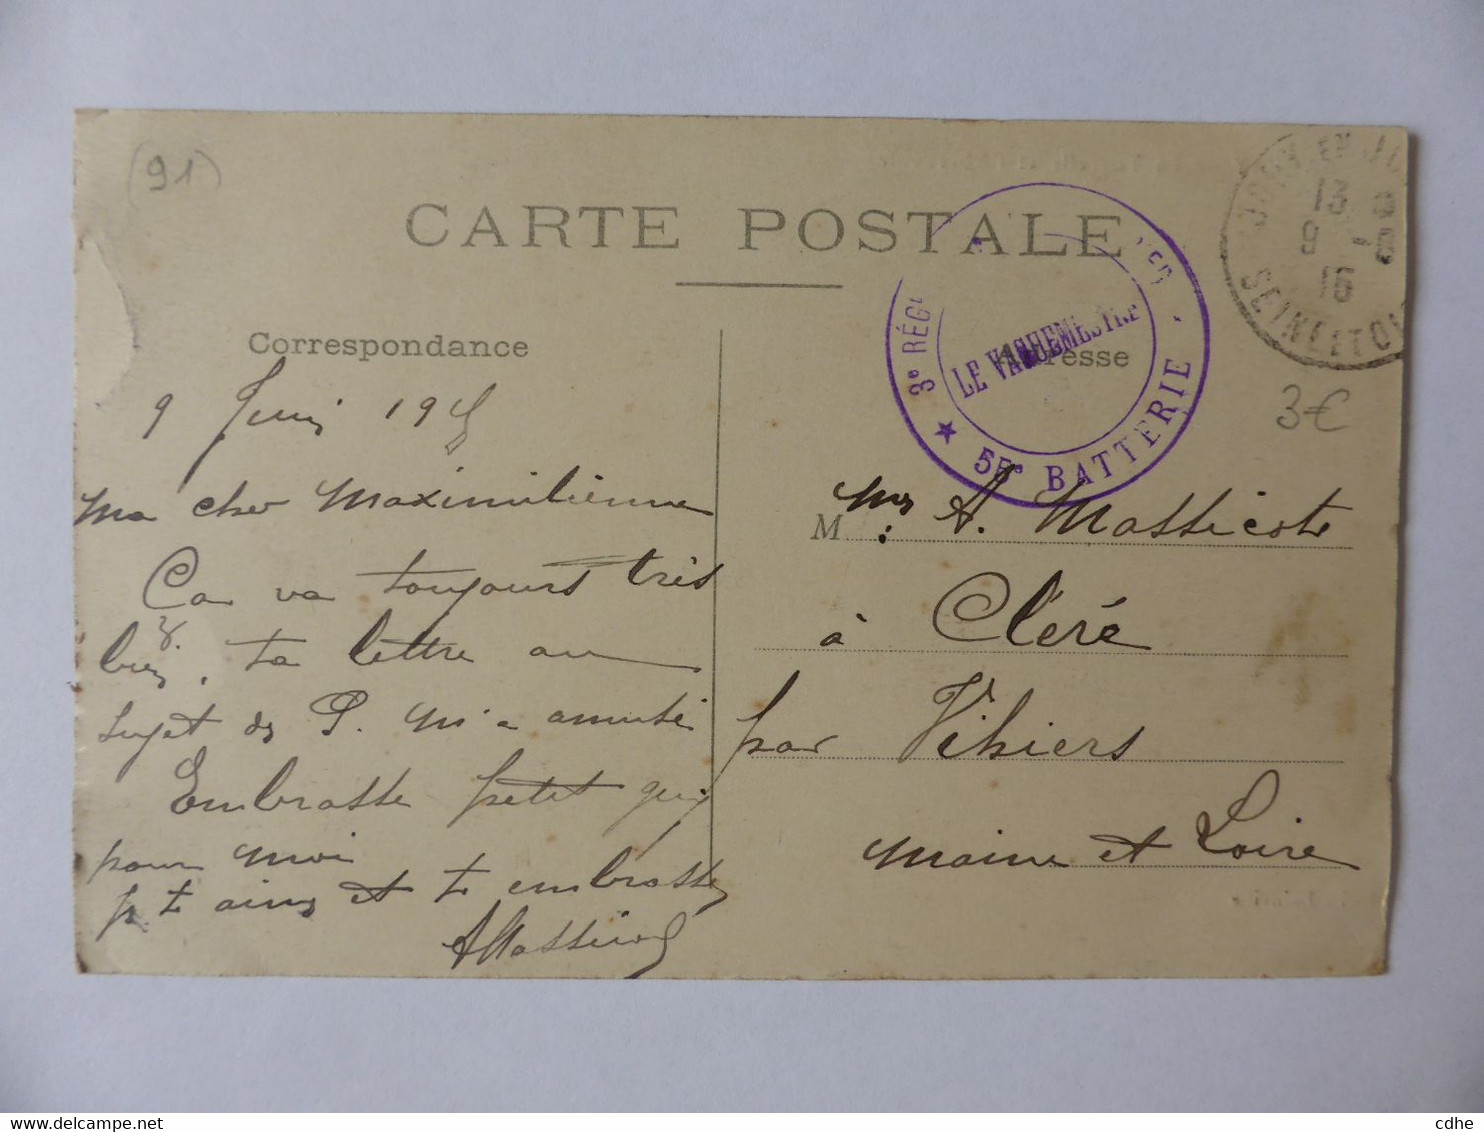 (91)
CARTE POSTALE
Correspondance
9 Juin 1915
Ma cher Maximilienne
Ca va toujours très
bien, ta lettre au
sujet de P. m'a amusé
Embrasse petit guy
pour moi
je t aime et te embrasse
AMassicot
3e RÉG
LE VAGUEMESTRE
55e BATTERIE
Adresse
JOUY EN JO
13
9 - 6
15
SEINE ET OI
3€
M me A. Massicot
à Cléré
par Vihiers
Maine et Loire
www.delcampe.net
cdhe